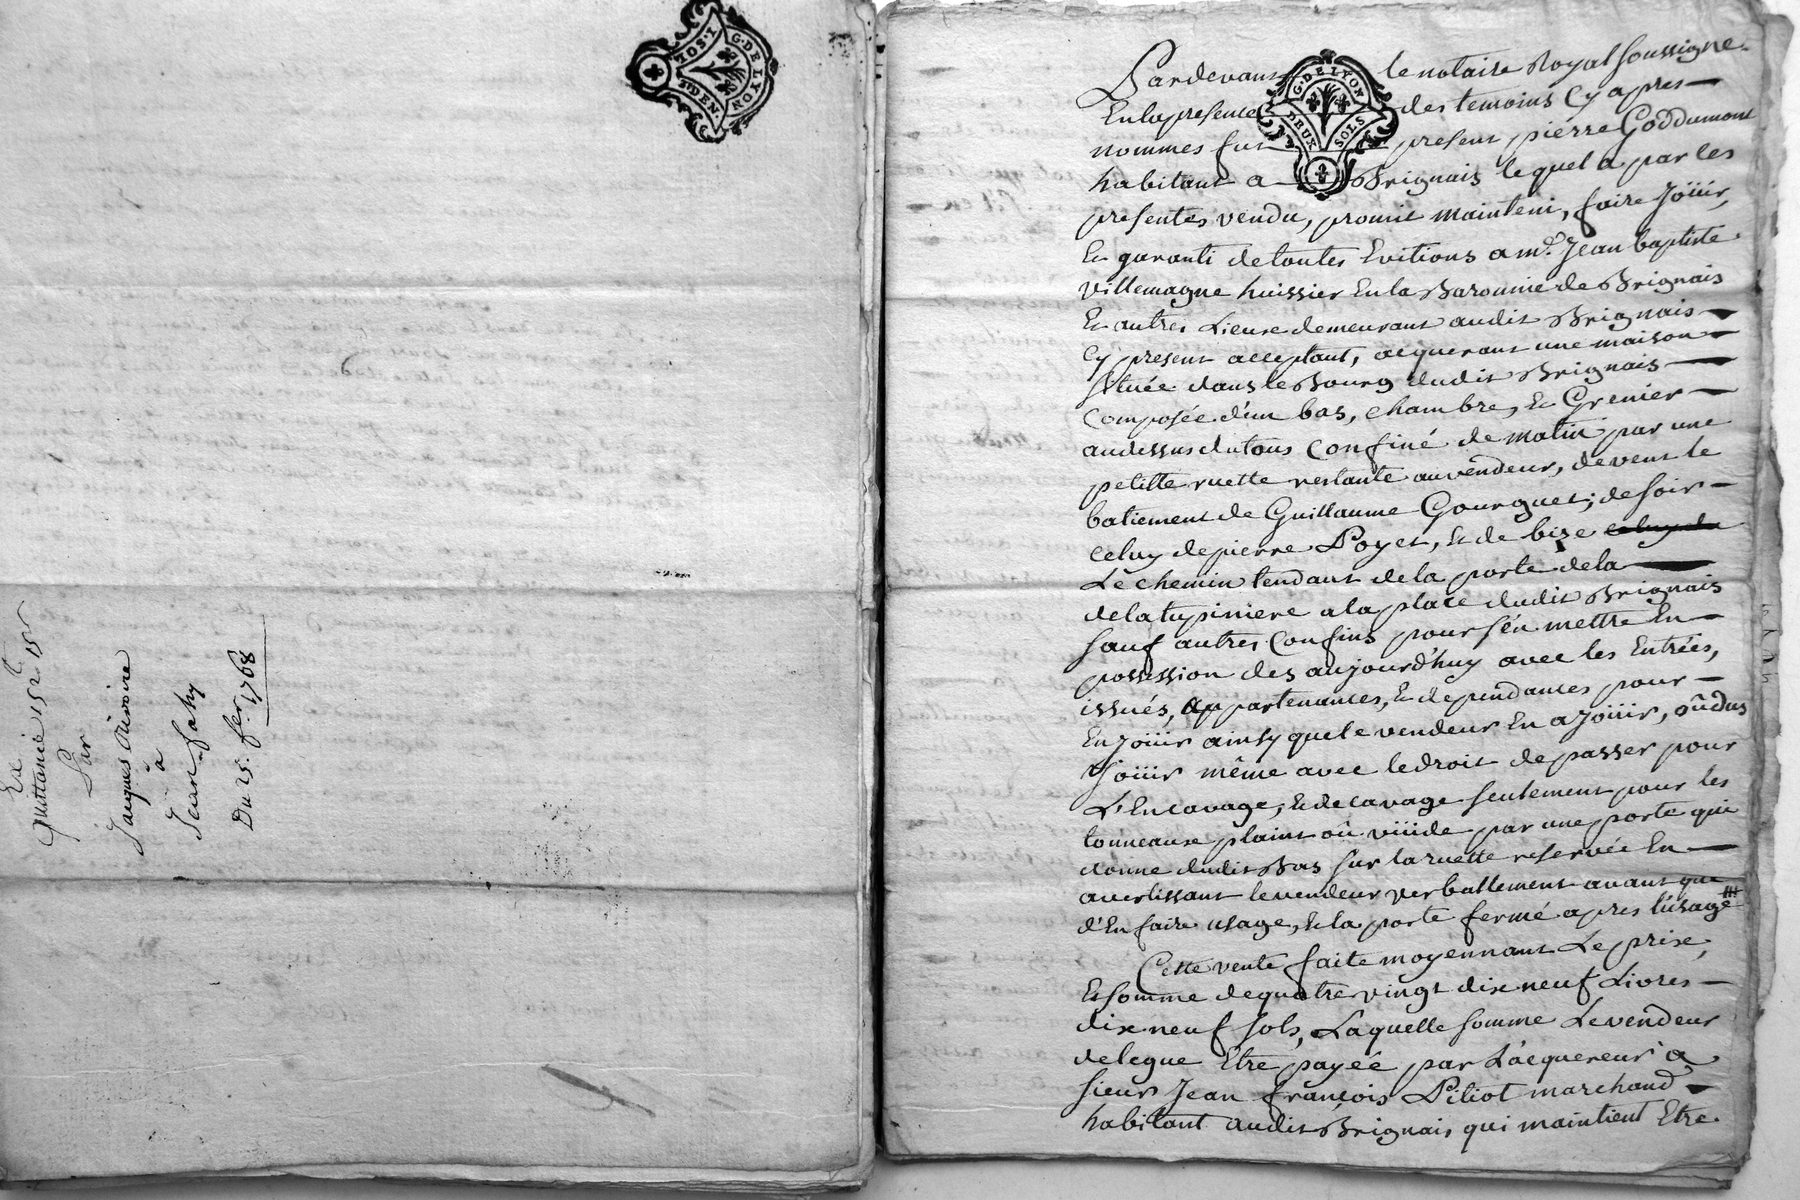 G·DE LYON
TOS·I
S·DEN·
Quittance 152# 15s
Par
Jacques Ouvoire
à
Jean faky
Du 25. fer. 1768
G·DE LYON
DEUX SOLS
Pardevant le notaire Royal soussigne
En la presence des temoins cy apres
nommes fut present pierre Goddumont
habitant a Brignais lequel a par les
presentes vendu, promit mainteni, faire Joüir,
Et garanti de toutes Evitions a mr. Jean baptiste
villemagne huissier En la Baronnie de Brignais
Et autres Lieux demeurant audit Brignais
Cy present acceptant, acquerant une maison
située dans le Bourg dudit Brignais
Composée d'un bas, chambre, Et Grenier
au dessus du tous Confiné de matin par une
petitte ruette restante au vendeur, de vent le
batiement de Guillaume Gourguet; de soir
celuy de pierre Poyet, Et de bize celuy du
Le chemin tendant de la porte de la
de la tupiniere a la place dudit Brignais
sauf autres Confins pour s'en mettre En
possession des aujourd'huy avec les Entrées,
issués, appartenances, Et dependances pour
En Joüir ainsy que le vendeur En a Joüir, oû dus
Joüir même avec le droit de passer pour
L'Encavage, Et decavage seulement pour les
tonneaux plaint oû viiide par une porte qui
donne dudit Bas sur la ruette reservée En
avertissant le vendeur verballement avant que
d'En faire usage, Et la porte fermé apres l'usage
Cette vente faite moyennant Le prix,
Et somme de quatre vingt dix neuf Livres
dix neuf sols, Laquelle somme Le vendeur
delegue Etre payéé par L'acquereur a
sieur Jean françois Pitiot marchand
habitant audit Brignais qui maintient Etre